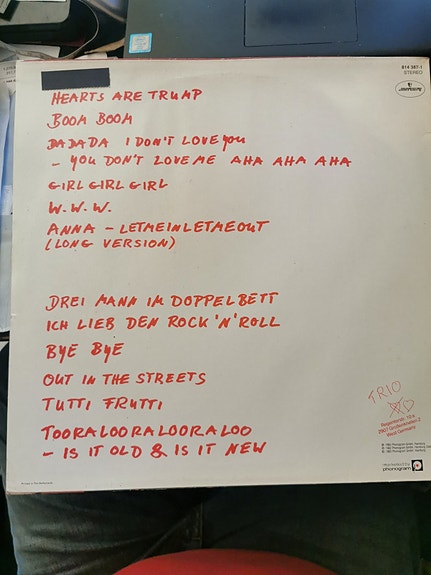 814 387-1
STEREO
HEARTS ARE TRUMP
BOOM BOOM
DADADA I DON'T LOVE YOU
- YOU DON'T LOVE ME AHA AHA AHA
GIRL GIRL GIRL
W.W.W.
ANNA - LETMEINLETMEOUT
(LONG VERSION)
DREI MANN IM DOPPELBETT
ICH LIEB DEN ROCK 'N' ROLL
BYE BYE
OUT IN THE STREETS
TUTTI FRUTTI
TOORALOORALOORALOO
- IS IT OLD & IS IT NEW
TRIO
Regenterstr. 10 a
2907 Großenkneten 2
West Germany
phonogram